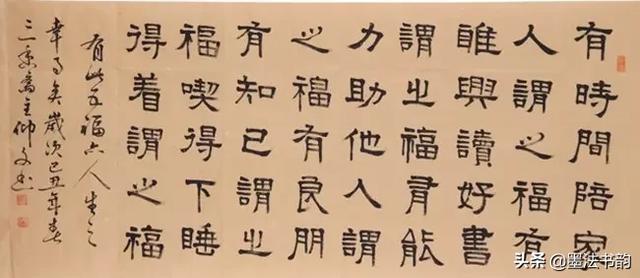 有時間陪家
人謂之福有
雅興讀好書
謂之福有能
力助他人謂
之福有良朋
有知己謂之
福喫得下睡
得着謂之福
有此五福亦人生之
幸事矣歲次己丑年春
齋主仰文書
头条 @墨法书韵